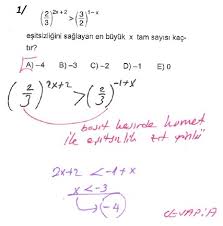 1/
(2/3)^2x+2 > (3/2)^1-x
eşitsizliğini sağlayan en büyük x tam sayısı kaç-
tır?
A) -4 B) -3 C) -2 D) -1 E) 0
(2/3)^2x+2 > (2/3)^-1+x
basit kesirde kuvvet
ile eşitsizlik zıt yönlü
2x+2 < -1+x
x < -3
-4
CEVAP:A